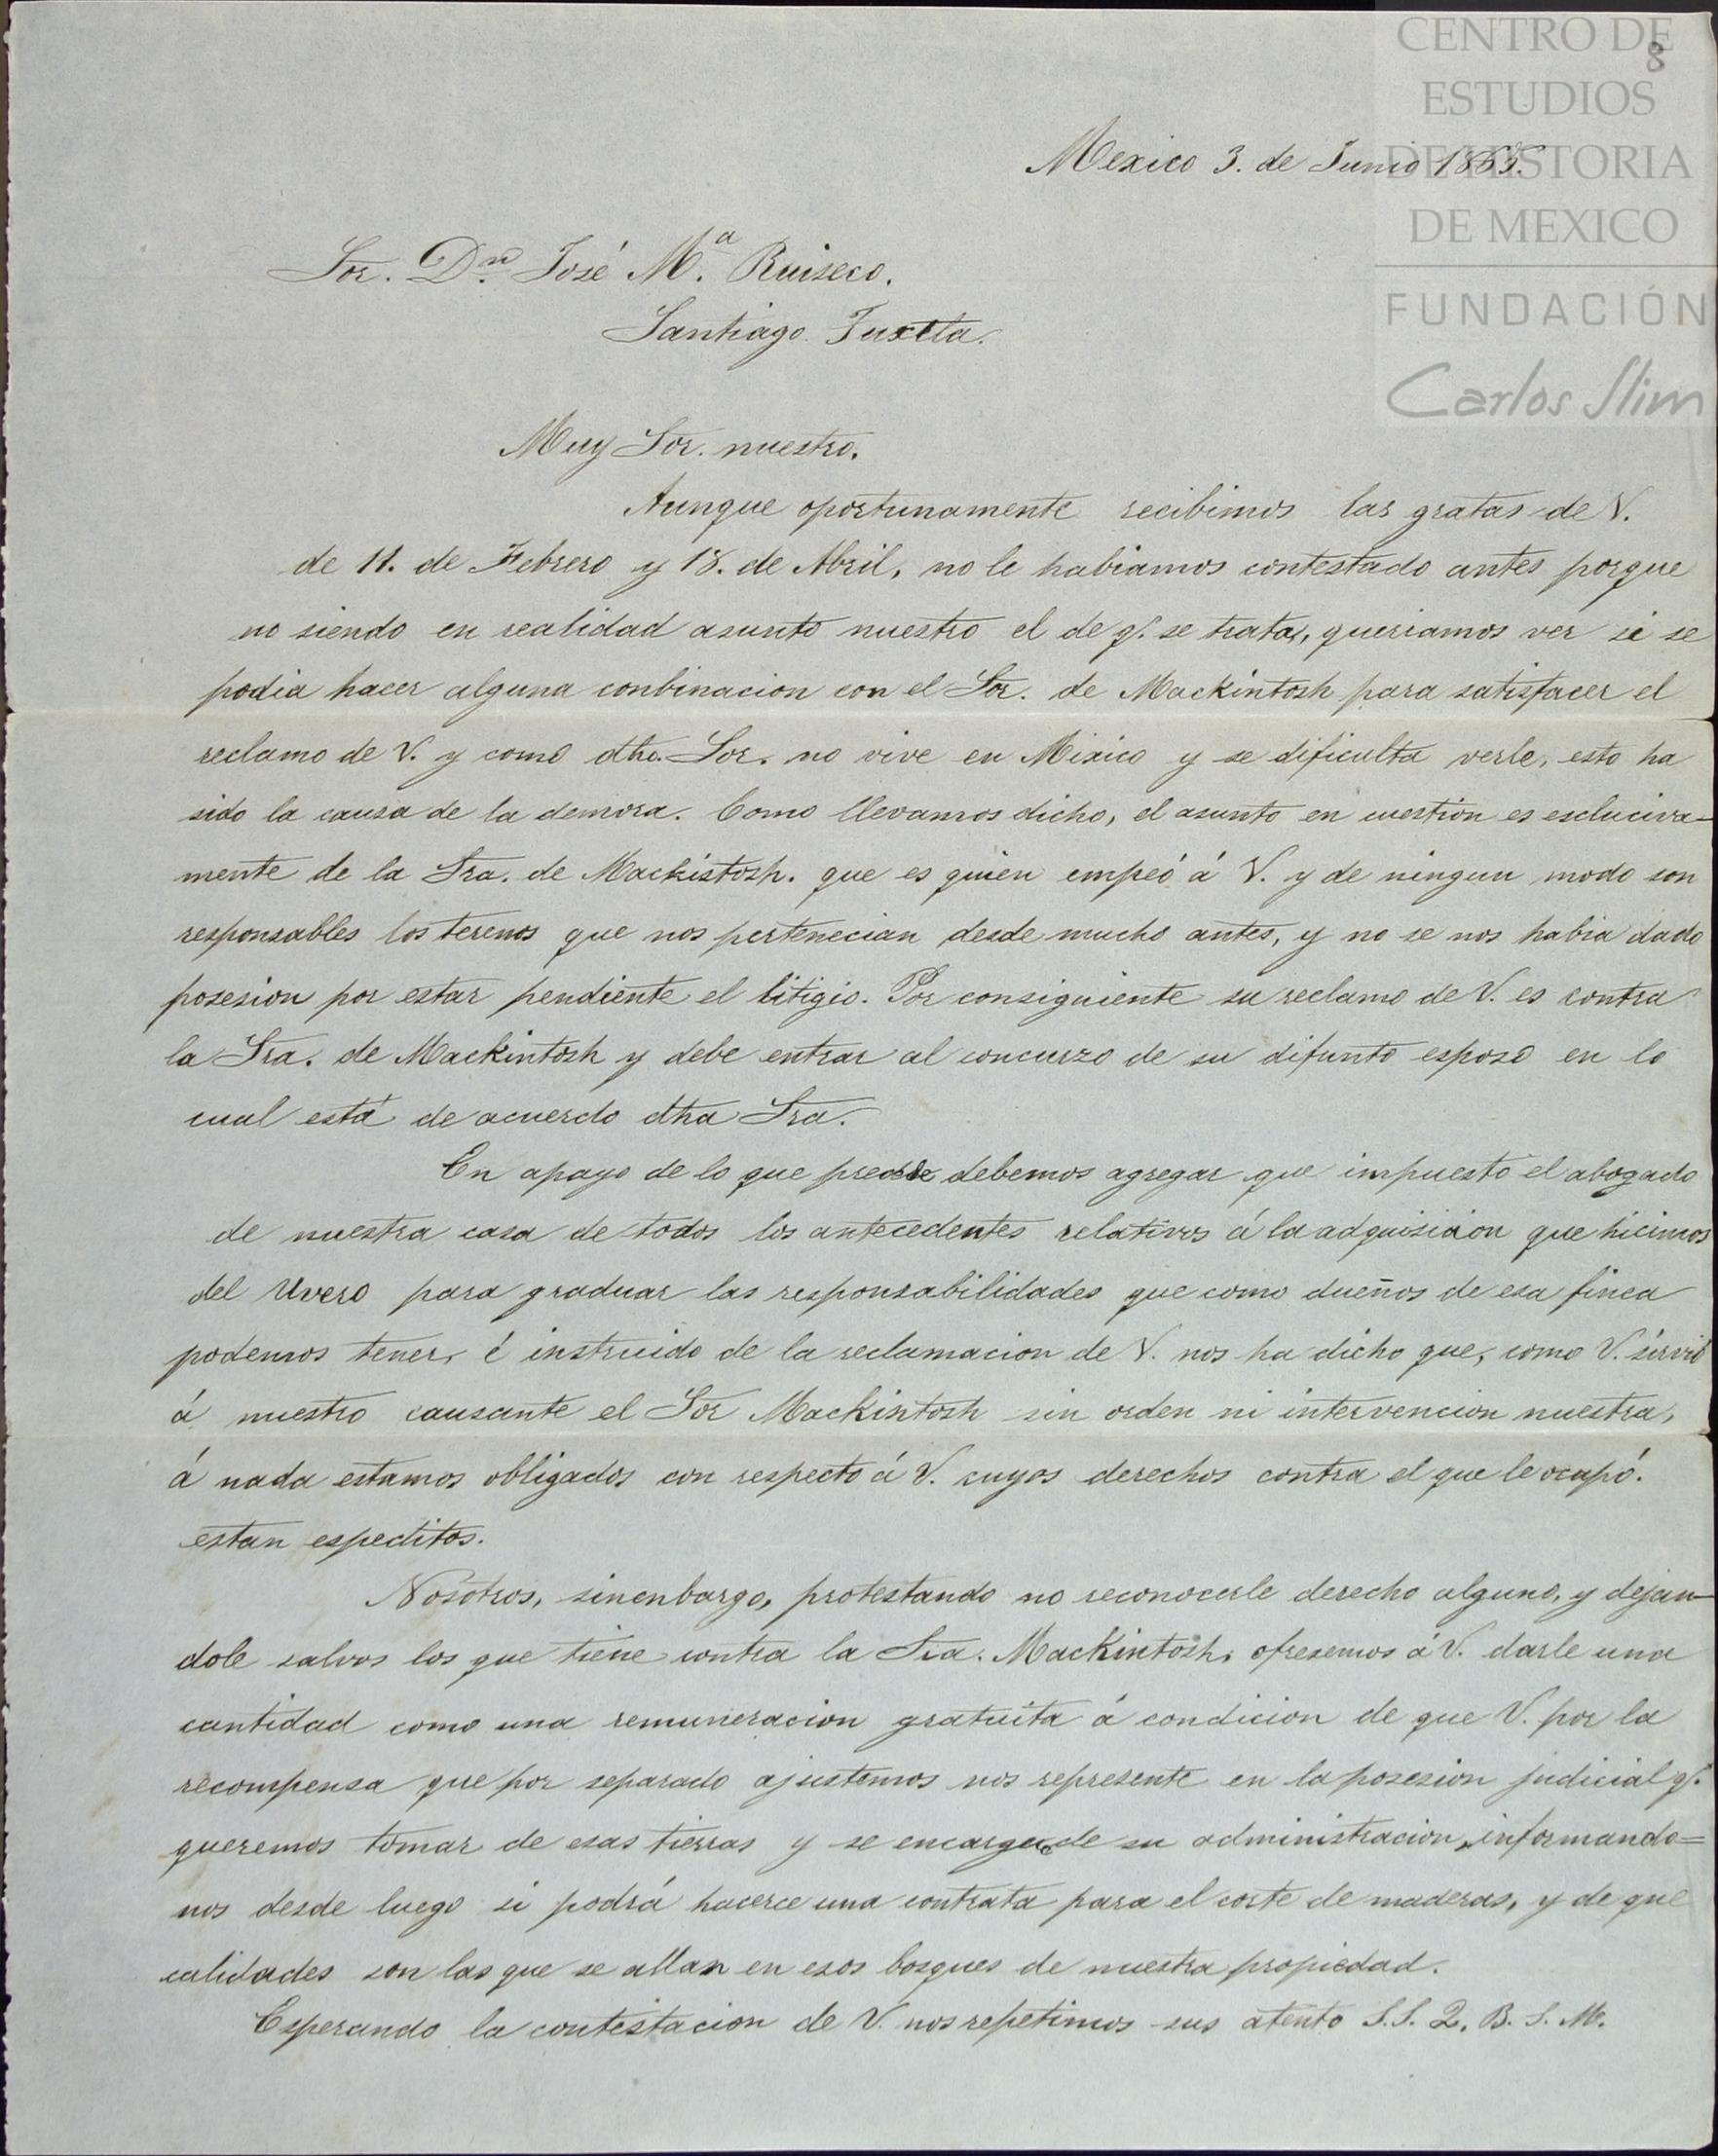 CENTRO DE
ESTUDIOS
DE HISTORIA
DE MEXICO
FUNDACIÓN
Carlos Slim
8
Mexico 3. de Junio 1865.
Sor. Dn. José Ma. Ruiseco.
Santiago Tuxtla.
Muy Sor. nuestro.
Aunque oportunamente recibimos las gratas de V.
de 11. de Febrero y 18. de Abril, no le habiamos contestado antes porque
no siendo en realidad asunto nuestro el de q. se trata, queriamos ver si se
podia hacer alguna conbinacion con el Sor. de Mackintosh para satisfacer el
reclamo de V. y como dho. Sor. no vive en Mixico y se dificulta verle, esto ha
sido la causa de la demora. Como llevamos dicho, el asunto en cuestion es escluciva-
mente de la Sra. de Mackistosh. que es quien empeó á V. y de ningun modo son
responsables los terenos que nos pertenecian desde mucho antes, y no se nos habia dado
posesion por estar pendiente el litigio. Por consiguiente su reclamo de V. es contra
la Sra. de Mackintosh y debe entrar al concurzo de su difunto esposo en lo
cual está de acuerdo dha Sra.
En apayo de lo que precede debemos agregar que impuesto el abogado
de nuestra casa de todos los antecedentes relativos á la adquisicion que hicimos
del Uvero para graduar las responsabilidades que como dueños de esa finca
podemos tener, é instruido de la reclamacion de V. nos ha dicho que, como V. sirvió
á nuestro causante el Sor Mackintosh sin orden ni intervencion nuestra,
á nada estamos obligados con respecto á V. cuyos derechos contra el que le ocupó.
estan espeditos.
Nosotros, sinenbargo, protestando no reconocerle derecho alguno, y dejan-
dole salvos los que tiene contra la Sra. Mackintosh, ofresemos á V. darle una
cantidad como una remuneracion gratuita á condicion de que V. por la
recompensa que por separado ajustemos nos represente en la posesion judicial q.
queremos tomar de esas tierras y se encargue de su administracion, informando=
nos desde luego si podrá hacerce una contrata para el corte de maderas, y de que
calidades son las que se allan en esos bosques de nuestra propiedad.
Esperando la contestacion de V. nos repetimos sus atento S.S. Q. B. S. M.